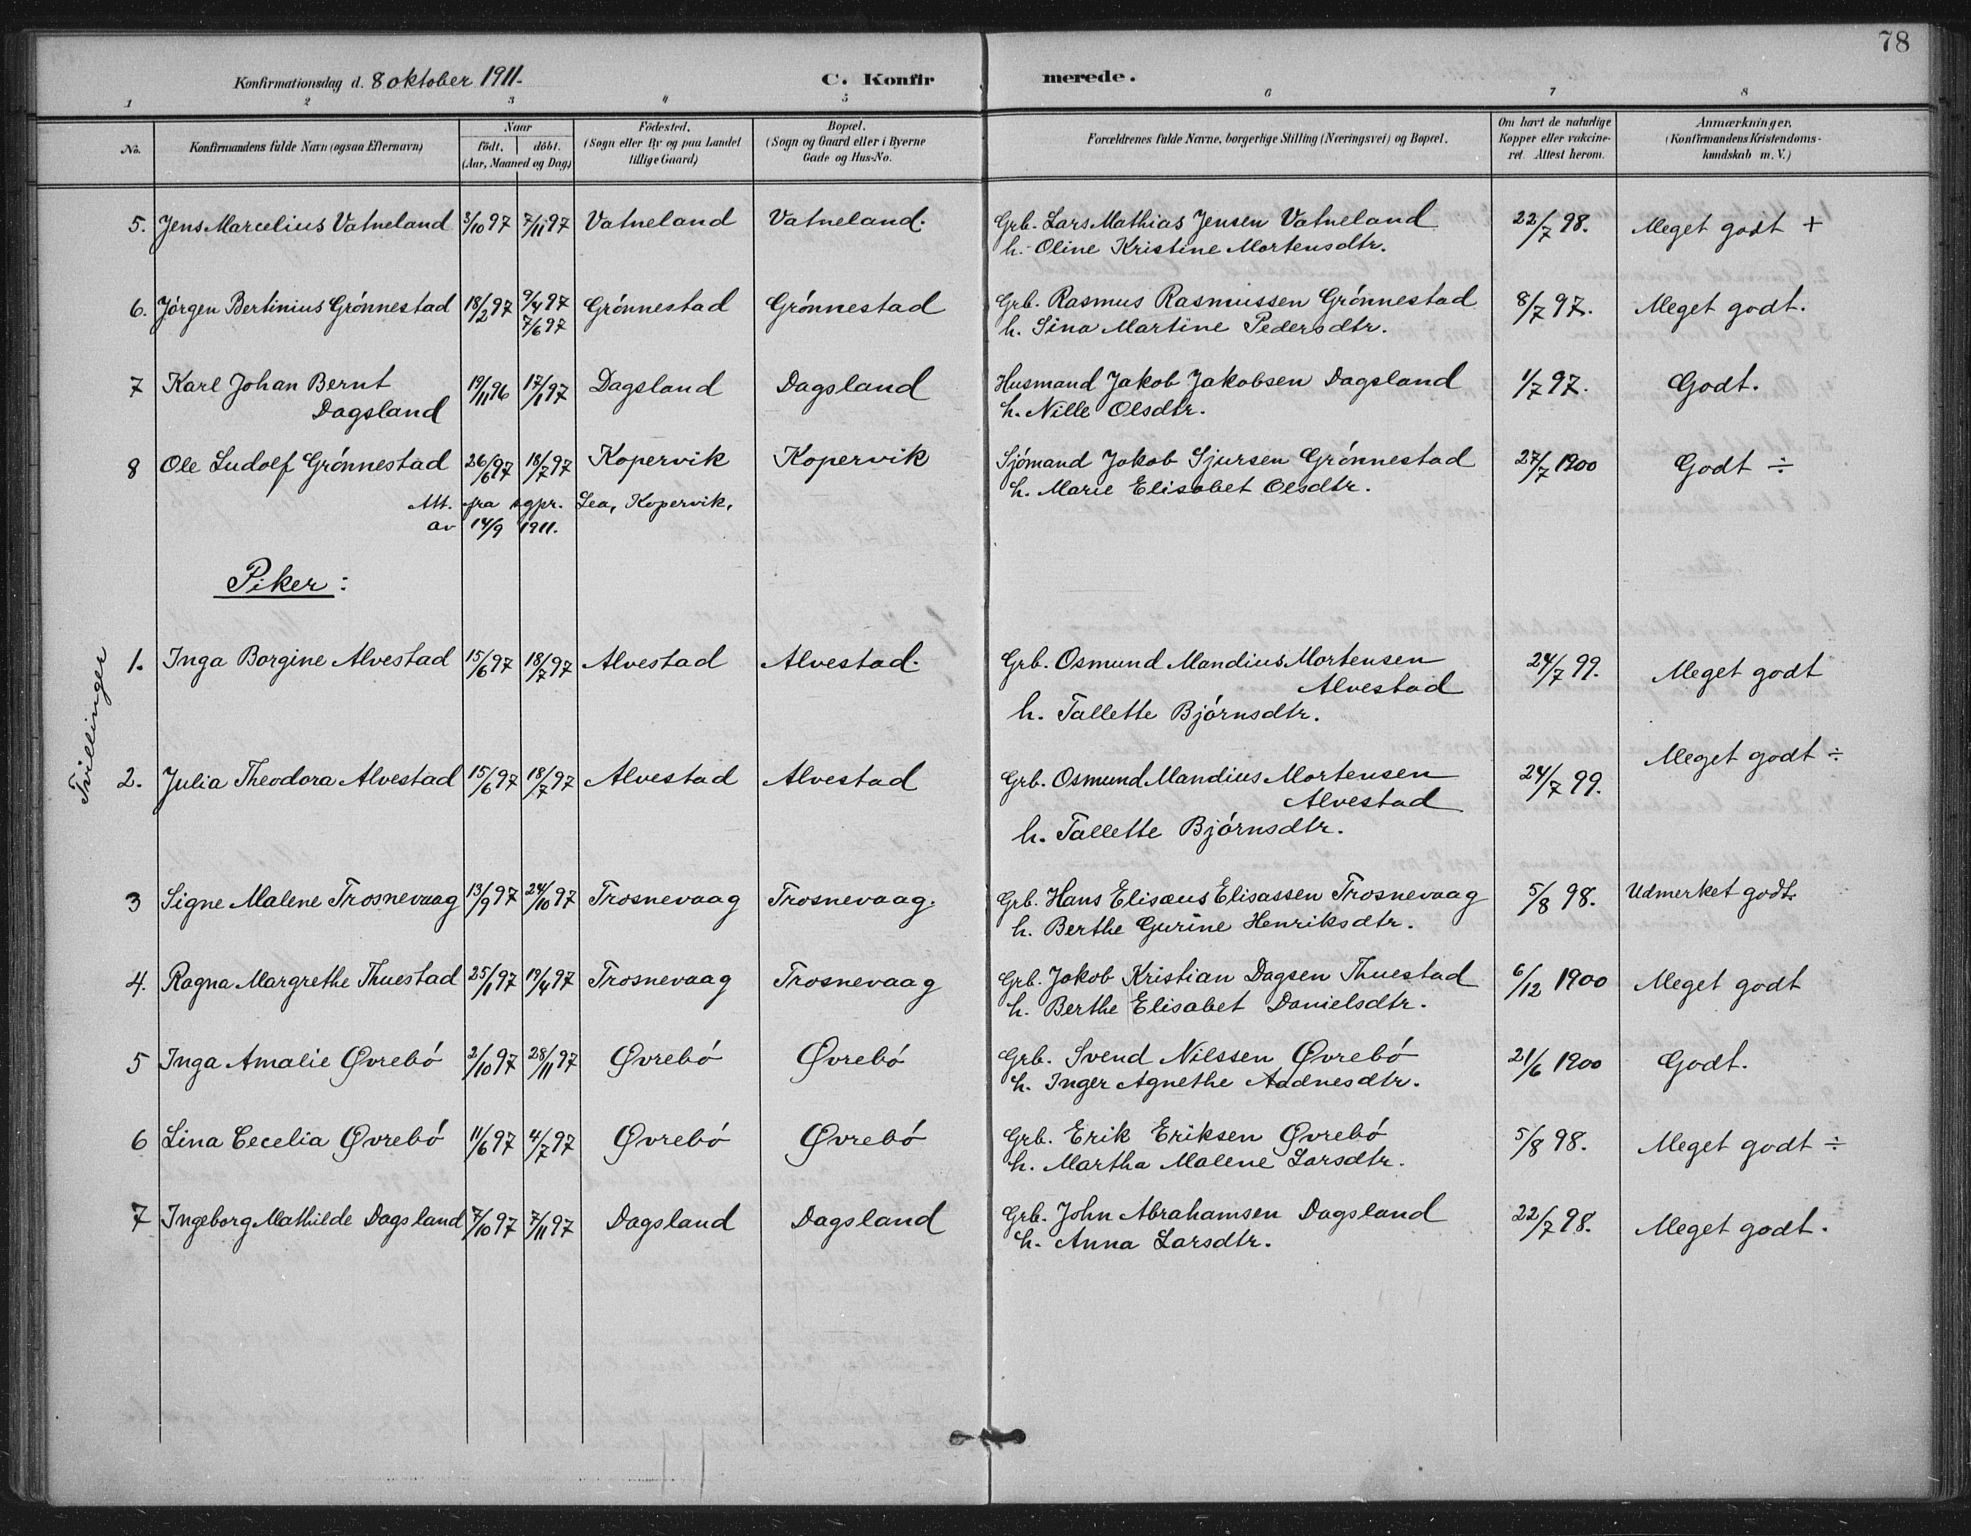 78
Konfirmationsdag d. 8 oktober 1911.
C. Konfirmerede.
1 2 3 4 5 6 7 8
No. Konfirmandens fulde Navn (ogsaa Efternavn) Naar født, døbt. (Aar, Maaned og Dag) Fødested. (Sogn eller By og paa Landet tillige Gaard) Bopæl. (Sogn og Gaard eller i Byerne Gade og Hus-No. Forældrenes fulde Navne, borgerlige Stilling (Næringsvei) og Bopæl. Om havt de naturlige Kopper eller vakcineret. Attest herom. Anmærkninger. (Konfirmandens Kristendomskundskab m. V.)
5. Jens Marcelius Vatneland 3/10 97 7/11 97 Vatneland Vatneland. Grb. Lars Mathias Jensen Vatneland 22/7 98. Meget godt +
h. Oline Kristine Mortensdtr.
6. Jórgen Bertinius Grónnestad 18/2 97 9/4 97 Grónnestad Grónnestad Grb. Rasmus Rasmussen Grónnestad 8/7 97. Meget godt.
7/6 97 h. Sina Martine Pedersdtr.
7 Karl Johan Bernt 19/11 96 17/1 97 Dagsland Dagsland Husmand Jakob Jakobsen Dagsland 1/7 97. Godt.
Dagsland h. Nille Olsdtr.
8 Ole Ludolf Grónnestad 26/6 97 18/7 97 Kopervik Kopervik Sjómand Jakob Sjursen Grónnestad 27/7 1900 Godt ÷
h. Marie Elisabet Olsdtr.
Att. fra sgpr. Lea, Kopervik,
av 14/9 1911.
Piker:
Tvillinger
1. Inga Borgine Alvestad 15/6 97 18/7 97 Alvestad Alvestad. Grb. Osmund Mandius Mortensen 24/7 99. Meget godt
Alvestad
h. Tallette Bjórnsdtr.
2. Julia Theodora Alvestad 15/6 97 18/7 97 Alvestad Alvestad Grb. Osmund Mandius Mortensen 24/7 99. Meget godt ÷
Alvestad
h. Tallette Bjórnsdtr.
3 Signe Malene Trosnevaag 13/9 97 24/10 97 Trosnevaag Trosnevaag. Grb. Hans Elisæus Elisassen Trosnevaag 5/8 98. Udmerket godt.
h. Berthe Gurine Henriksdtr.
4. Ragna Margrethe Thuestad 25/1 97 19/4 97 Trosnevaag Trosnevaag Grb. Jakob Kristian Dagsen Thuestad 6/12 1900 Meget godt
h. Berthe Elisabet Danielsdtr.
5 Inga Amalie Øvrebó 2/10 97 28/11 97 Øvrebó Øvrebó Grb. Svend Nilssen Øvrebó 21/6 1900 Godt.
h. Inger Agnethe Aadnesdtr.
6 Lina Cecelia Øvrebó 11/6 97 4/7 97 Øvrebó Øvrebó Grb. Erik Eriksen Øvrebó 5/8 98. Meget godt ÷
h. Martha Malene Larsdtr.
7 Ingeborg Mathilde Dagsland 7/10 97 7/11 97 Dagsland Dagsland Grb. John Abrahamsen Dagsland 22/7 98. Meget godt.
h. Anna Larsdtr.